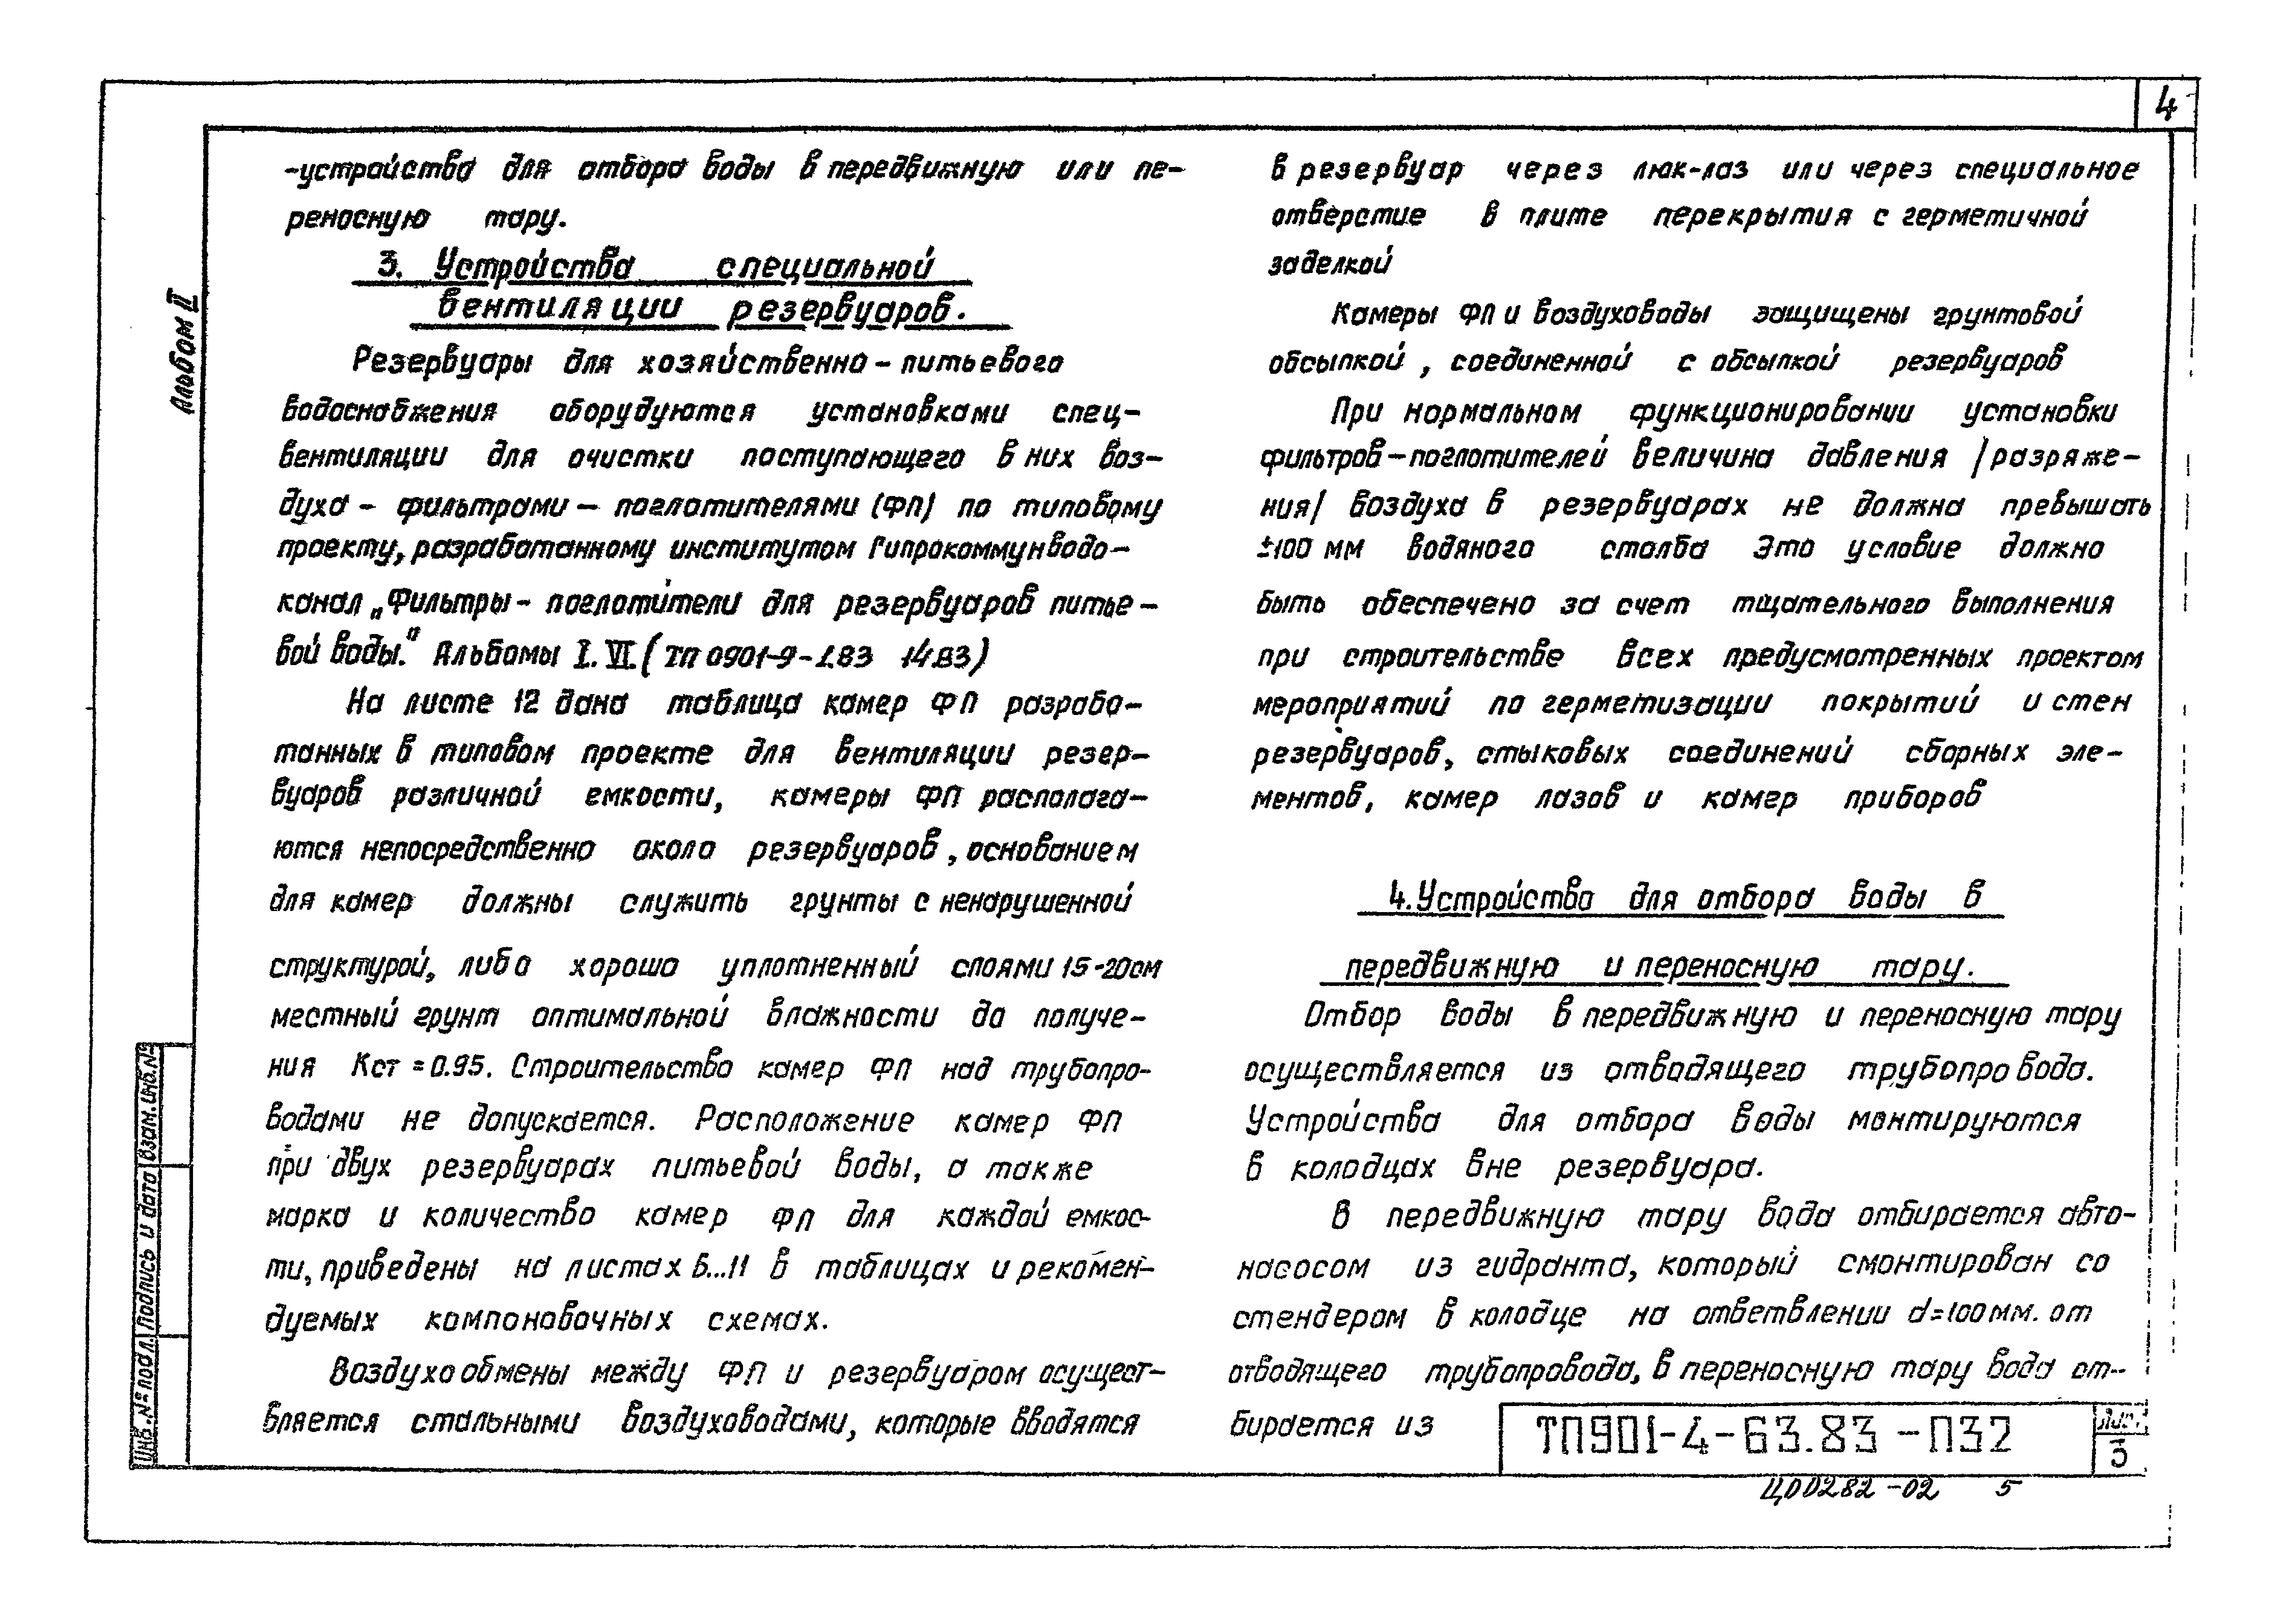 4
Альбом II
-устройства для отбора воды в передвижную или пе-
реносную тару.
3. Устройства специальной
вентиляции резервуаров.
Резервуары для хозяйственно-питьевого
водоснабжения оборудуются установками спец-
вентиляции для очистки поступающего в них воз-
духа - фильтрами - поглотителями (ФП) по типовому
проекту, разработанному институтом Гипрокоммунводо-
канал „Фильтры - поглотители для резервуаров питье-
вой воды." Альбомы I. VI. (ТП 0901-9-
На листе 12 дана таблица камер ФП разрабо-
танных в типовом проекте для вентиляции резер-
вуаров различной емкости, камеры ФП располага-
ются непосредственно около резервуаров, основанием
для камер должны служить грунты с ненарушенной
структурой, либо хорошо уплотненный слоями 15-20см
местный грунт оптимальной влажности до получе-
ния Кст = 0.95. Строительство камер ФП над трубопро-
водами не допускается. Расположение камер ФП
при двух резервуарах питьевой воды, а также
марка и количество камер ФП для каждой емкос-
ти, приведены на листах 6...11 в таблицах и рекомен-
дуемых компоновочных схемах.
Воздухообмены между ФП и резервуаром осущест-
вляется стальными воздуховодами, которые вводятся
в резервуар через люк-лаз или через специальное
отверстие в плите перекрытия с герметичной
заделкой
Камеры ФП и воздуховоды защищены грунтовой
обсыпкой, соединенной с обсыпкой резервуаров
При нормальном функционировании установки
фильтров-поглотителей величина давления /разряже-
ния/ воздуха в резервуарах не должна превышать
±100 мм водяного столба Это условие должно
быть обеспечено за счет тщательного выполнения
при строительстве всех предусмотренных проектом
мероприятий по герметизации покрытий и стен
резервуаров, стыковых соединений сборных эле-
ментов, камер лазов и камер приборов
4. Устройства для отбора воды в
передвижную и переносную тару.
Отбор воды в передвижную и переносную тару
осуществляется из отводящего трубопровода.
Устройства для отбора воды монтируются
в колодцах вне резервуара.
В передвижную тару вода отбирается авто-
насосом из гидранта, который смонтирован со
стендером в колодце на ответвлении d=100мм. от
отводящего трубопровода, в переносную тару вода от-
бирается из
ТП901-4-63.83-ПЗ2
Лист
3
ЦО0282-02 5
Инв. № подл. Подпись и дата Взам. инв. №